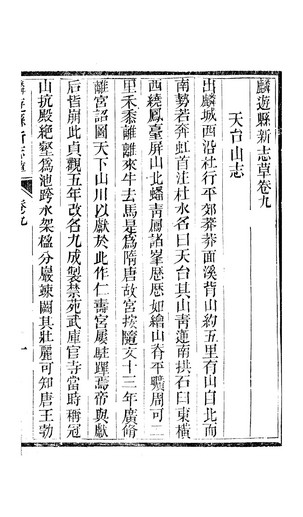 麟遊縣新志草卷九
天台山志
出麟城西沿杜行平郊莽莽面溪背山約五里有山自北而
南勢若奔虹首注杜水名曰天台其山靑蓮南拱石臼東橫
西繞鳳臺屏山北蟠靑鳳諸峯歷歷如繪山脊平曠周可二
里禾黍離離來牛去馬是爲隋唐故宮按隨亥十三年廣脩
離宮詔圖天下山川以獻於此作仁壽宮屢駐蹕焉帝與獻
后皆崩此貞觀五年改名九成製禁苑武庫官寺當時稱冠
山抗殿絕壑爲池跨水架楹分巖竦闕其壯麗可知唐王勃
麟遊縣新志草
卷九
一